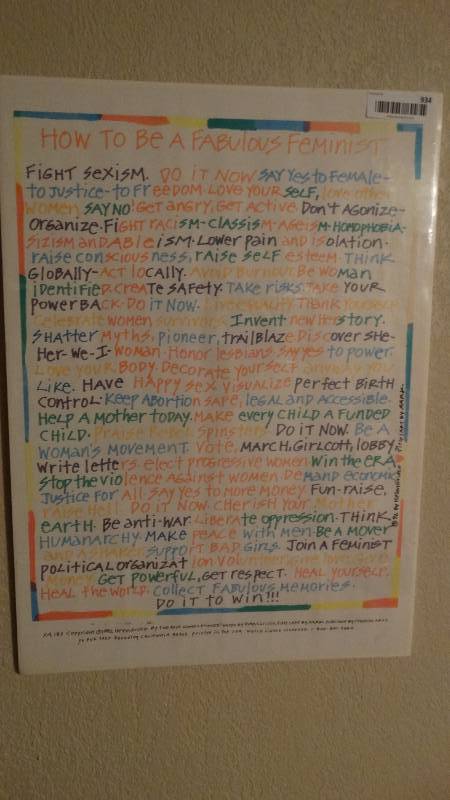 934
HOW TO BE A FABULOUS FEMINIST
FIGHT SEXISM. DO IT NOW. SAY YES TO FEMALE-
TO JUSTICE-TO FREEDOM. LOVE YOUR SELF, love other
WOMEN. SAY NO! GET ANGRY, GET ACTIVE. DON'T AGONIZE-
ORGANIZE. FIGHT RACISM-CLASSISM-AGEISM-HOMOPHOBIA-
SIZISM AND ABLEISM. LOWER PAIN AND ISOLATION.
RAISE CONSCIOUSNESS, RAISE SELF ESTEEM. THINK
GLOBALLY-ACT LOCALLY. AVOID BURNOUT. BE WOMAN
IDENTIFIED. CREATE SAFETY. TAKE RISKS. TAKE YOUR
POWER BACK. DO IT NOW. Live equality. THANK YOURSELF.
CELEBRATE WOMEN SURVIVORS. INVENT NEW HERSTORY.
SHATTER MYTHS, PIONEER, TRAILBLAZE. DISCOVER SHE-
HER-WE-I-WOMAN. HONOR LESBIANS. SAY YES TO POWER.
LOVE YOUR BODY. DECORATE YOURSELF anyway you
LIKE. HAVE HAPPY SEX. VISUALIZE PERFECT BIRTH
CONTROL. KEEP ABORTION SAFE, LEGAL AND ACCESSIBLE.
HELP A MOTHER TODAY. MAKE EVERY CHILD A FUNDED
CHILD. PRAISE REBEL SPINSTERS. DO IT NOW. BE A
WOMAN'S MOVEMENT. VOTE, MARCH, GIRLCOTT, LOBBY,
WRITE LETTERS. ELECT PROGRESSIVE WOMEN. WIN THE ERA.
STOP THE VIOLENCE AGAINST WOMEN. DEMAND ECONOMIC
JUSTICE FOR ALL. SAY YES TO MORE MONEY. FUN-RAISE,
RAISE HELL. DO IT NOW. CHERISH YOUR MOTHER
EARTH. BE ANTI-WAR. LIBERATE OPPRESSION. THINK
HUMANARCHY. MAKE PEACE WITH MEN. BE A MOVER
AND A SHAKER. SUPPORT BAD GIRLS. JOIN A FEMINIST
POLITICAL ORGANIZATION. VOLUNTEER. GIVE
MONEY. GET POWERFUL, GET RESPECT. HEAL YOURSELF.
HEAL THE WORLD. COLLECT FABULOUS MEMORIES.
DO IT TO WIN!!!